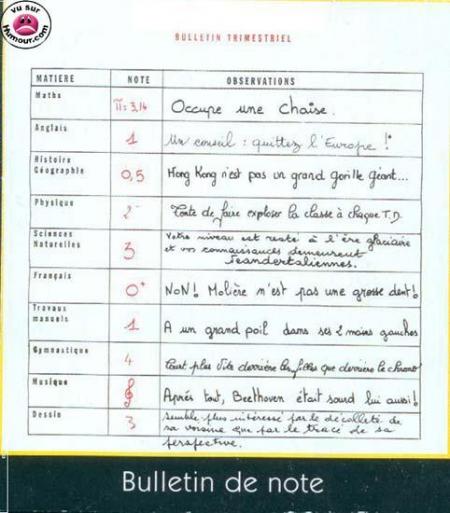 vu sur
Humour.com
BULLETIN TRIMESTRIEL
MATIERE NOTE OBSERVATIONS
Maths π=3,14 Occupe une chaise.
Anglais 1 Un conseil : quittez l'Europe !
Histoire
Géographie 0,5 Hong Kong n'est pas un grand gorille géant...
Physique 2⁻ Tente de faire exploser la classe à chaque T.D.
Sciences
Naturelles 3 Votre niveau est resté à l'ère glaciaire
et vos connaissances demeurent
Neandertaliennes.
Français 0⁺ NON! Molière n'est pas une grosse dent!
Travaux
manuels 1 A un grand poil dans ses 2 mains gauches
Gymnastique 4 Court plus vite derrière les filles que derrière le chrono
Musique 𝄞 Après tout, Beethoven était sourd lui aussi!
Dessin 3 Semble plus intéressé par le décolleté de
sa voisine que par le tracé de sa
perspective.
Bulletin de note